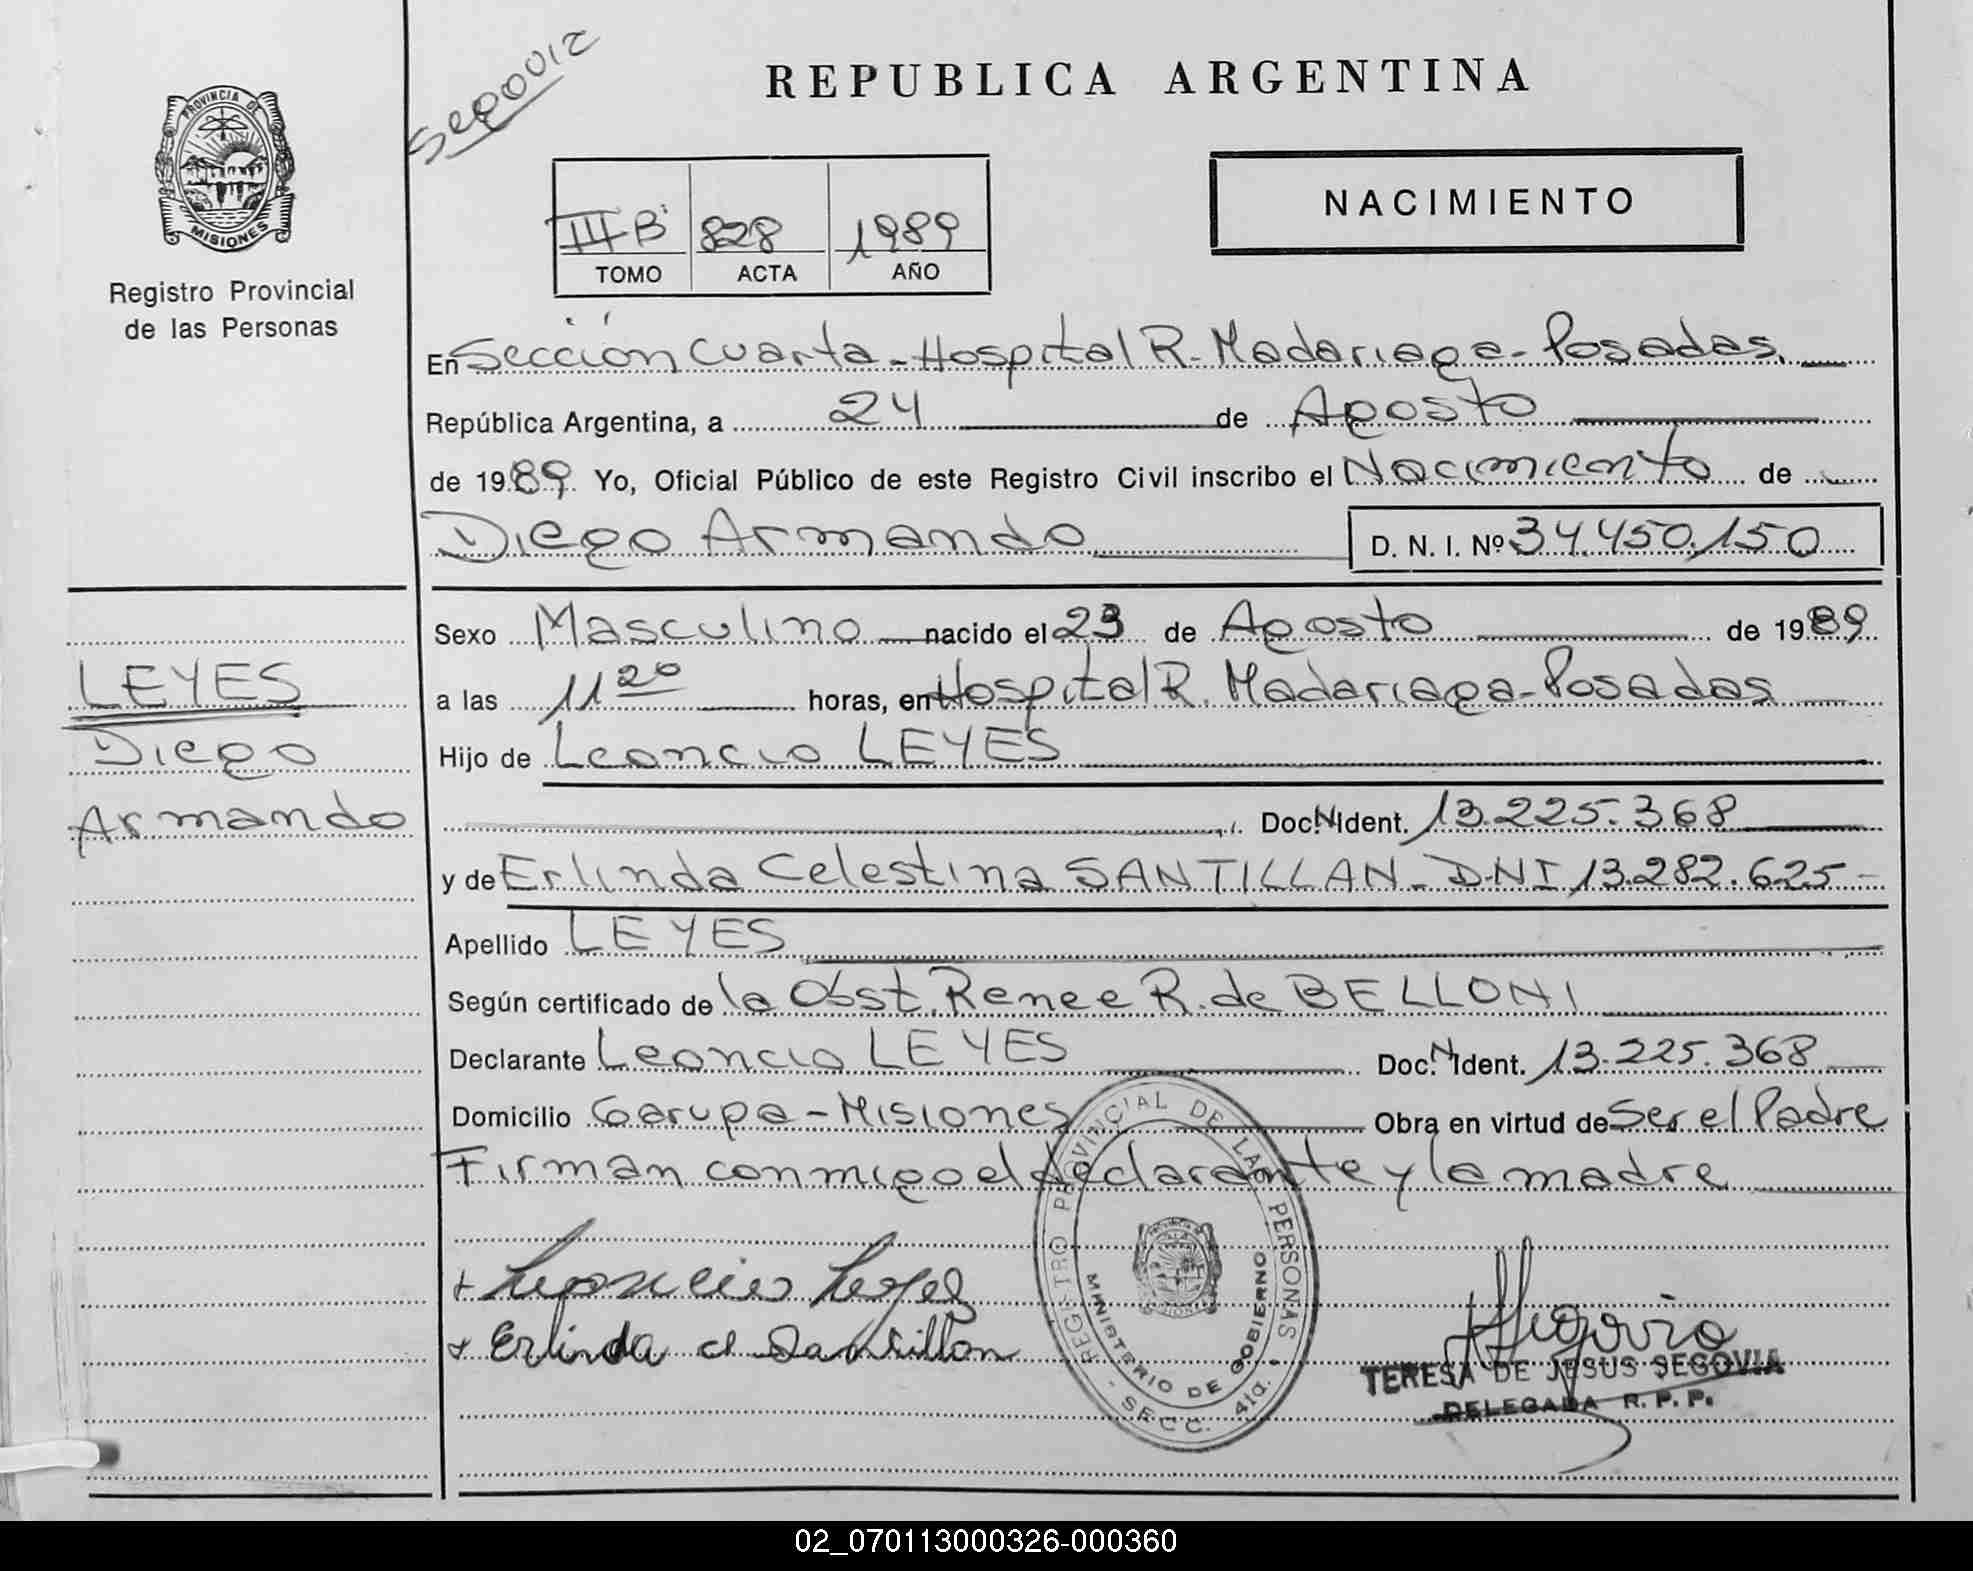 Segovia
REPUBLICA ARGENTINA
PROVINCIA DE
MISIONES
Registro Provincial
de las Personas
NACIMIENTO
III B 828 1989
TOMO ACTA AÑO
En Sección Cuarta - Hospital R. Madariaga - Posadas.
República Argentina, a 24 de Agosto
de 1989 Yo, Oficial Público de este Registro Civil inscribo el Nacimiento de
Diego Armando D. N. I. Nº 34.450.150
Sexo Masculino nacido el 23 de Agosto de 1989
a las 11 20 horas, en Hospital R. Madariaga - Posadas
Hijo de Leoncio LEYES
Doc. N Ident. 13.225.368
y de Erlinda Celestina SANTILLAN - DNI 13.282.625 -
Apellido LEYES
Según certificado de la Obst. Renee R. de BELLONI
Declarante Leoncio LEYES Doc. N Ident. 13.225.368
Domicilio Garupa - Misiones Obra en virtud de Ser el Padre
Firman conmigo el declarante y la madre
LEYES
Diego
Armando
+ Leoncio Leyes
+ Erlinda C Santillan
REGISTRO PROVINCIAL DE LAS PERSONAS
MINISTERIO DE GOBIERNO
- SECC. 4ta. -
Segovia
TERESA DE JESUS SEGOVIA
DELEGADA R. P. P.
02_070113000326-000360